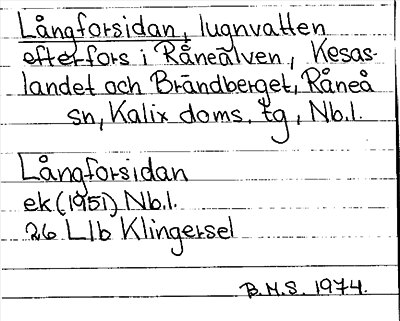 Långforsidan, lugnvatten
efterfors i Råneälven, Kesas-
landet och Brändberget, Råneå
sn, Kalix doms. tg, Nb.l.
Långforsidan
ek (1951) Nb.l.
26 L1b Klingersel
B.M.S. 1974.